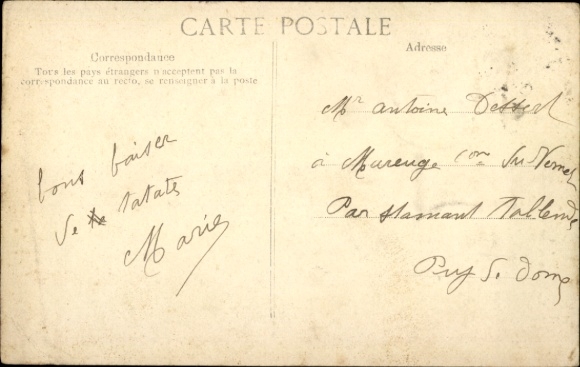 CARTE POSTALE
Correspondance
Tous les pays étrangers n'acceptent pas la
correspondance au recto, se renseigner à la poste.
bons baiser
de tatate
Marie
Adresse
Mr antoine
à Mureuge Con Su Vernet
Par stamant Tallende
Puy de dome